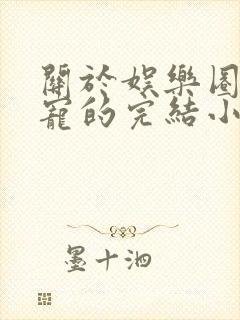 關於娛樂圈
寵的完結小
墨十泗